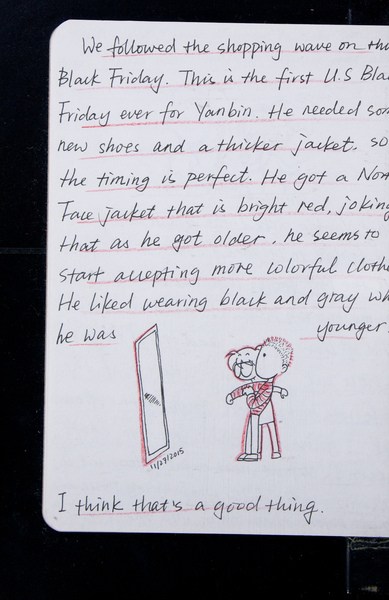 We followed the shopping wave on thi
Black Friday. This is the first U.S Bla
Friday ever for Yanbin. He needed som
new shoes and a thicker jacket. so
the timing is perfect. He got a Nor
Face jacket that is bright red, joking
that as he got older, he seems to
start accepting more colorful clothe
He liked wearing black and gray wh
he was younger.
11/27/2015
I think that's a good thing.